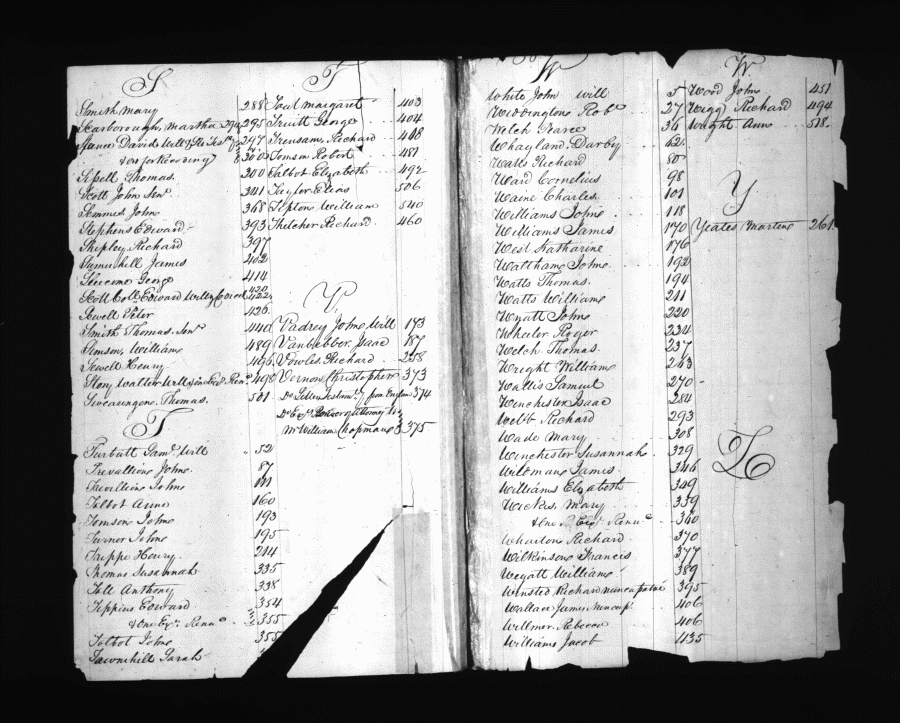 S
Smith, Mary 288
Scarborough, Martha 295
Stance Davids Will & 297
& one for Rec 300
Sipell Thomas. 300
Scott John Senr 341
Semmes John 368
Stephens Edward 393
Shipley Richard 397
Sumerhill James 402
Gorge 414
Scott Edward Will 420
422
Sewell Peter 426
Smith Thomas Senr 440
Simson, William 489
Sewell Henry 496
Story Walter Will 498
Thomas. 501
T
Turbutt Saml Will 52
Trevallion John 87
John 101
Talbot Anne 160
Tomson John 193
Turner John 195
Trippe Henry 244
Thomas Susannah 335
Till Anthony 338
Tippins Edward 354
& one Exr Renu 355
Tolbot John 355
Townehill Sarah
T
Toul Margaret 403
Truitt George 404
Trensam, Richard 408
Tomson Robert 481
Talbot Elizabeth 492
Taylor Elias 506
Tipton William 540
Thelcher Richard 460
V.
Vadrey John Will 173
Vanbebber Isaac 187
Vowles Richard 258
Vernon Christopher 373
Do Letter from England 374
Do Exr
Mr William Chapman 375
W
White John Will 5
Widdington Robt 27
Welch Pearce 36
Whayland Darby 62
Watts Richard 80
Ward Cornelius 98
Waine Charles 101
Williams John 118
Williams James 170
West Katharine 176
Waltham John 192
Watts Thomas. 194
Watts William 211
Wyatt John 220
Wheeler Roger 234
Welch Thomas. 237
Wright William 243
Wallis Samuel 270
Winchester Isaac 284
Webb Richard 293
Wade Mary 308
Winchester Susannah 329
Wildman James 346
Williams Elizabeth 349
Wickes, Mary 339
& one Exr Renu 340
Wharton Richard 370
Wilkinson Francis 377
Wyatt William 389
Winsted Richard nuncupative 395
Wallace James nuncup 406
Willmer Rebecca 406
Williams Jacob 1135
W.
Wood John 451
Wigg Richard 494
Wright Anne 518
Y
Yeates Marten 261
Z